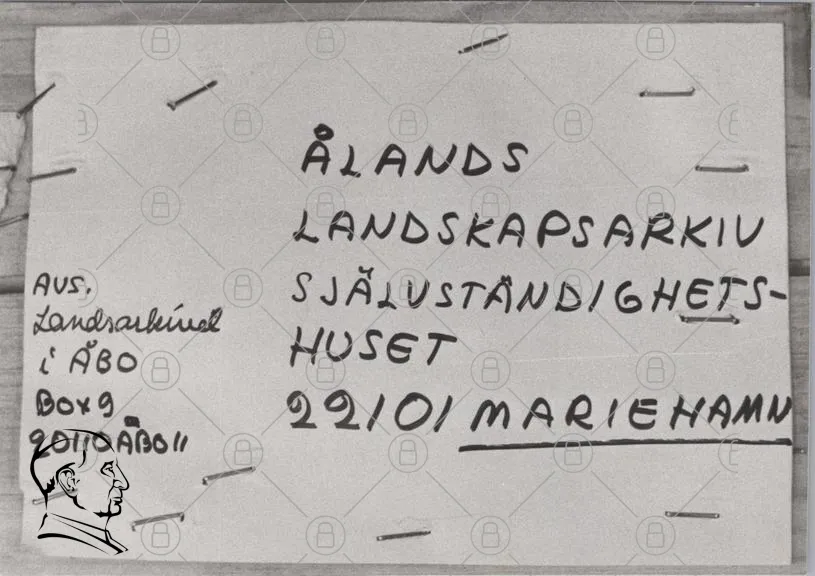 ÅLANDS
LANDSKAPSARKIV
SJÄLVSTÄNDIGHETS-
HUSET
22101 MARIEHAMN
AVS.
Landsarkivet
i ÅBO
Box 9
20110 ÅBO 11